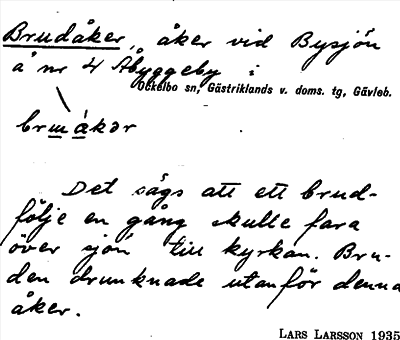 Brudåker, åker vid Bysjön
å nr 4 Åbyggeby i
Ockelbo sn, Gästriklands v. doms. tg, Gävleb.
brɯ́ákər
Det sägs att ett brud-
följe en gång skulle fara
över sjön till kyrkan. Bru-
den drunknade utanför denna
åker.
LARS LARSSON 1935